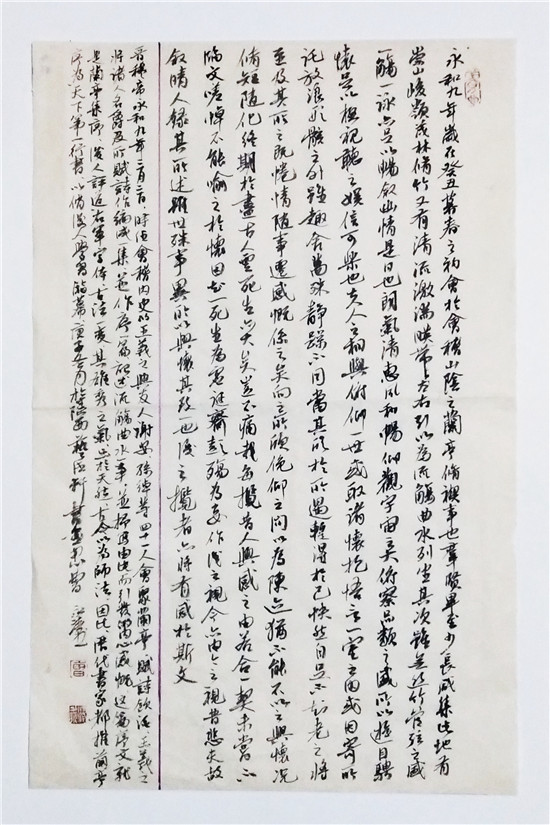 永和九年歲在癸丑暮春之初會於會稽山陰之蘭亭脩禊事也羣賢畢至少長咸集此地有
崇山峻嶺茂林脩竹又有清流激湍暎帶左右引以為流觴曲水列坐其次雖無絲竹管弦之盛
一觴一詠亦足以暢敘幽情是日也朗氣清惠風和暢仰觀宇宙之大俯察品類之盛所以遊目騁
懷足以極視聽之娛信可樂也夫人之相與俯仰一世或取諸懷抱悟言一室之內或因寄所
託放浪形骸之外雖趣舍萬殊靜躁不同當其欣於所遇暫得於己快然自足不知老之將
至及其所之既惓情隨事遷感慨係之矣向之所欣俛仰之間以為陳迹猶不能不以之興懷況
脩短隨化終期於盡古人云死生亦大矣豈不痛哉每攬昔人興感之由若合一契未嘗不
臨文嗟悼不能喻之於懷固知一死生為虛誕齊彭殤為妄作後之視今亦由今之視昔悲夫故
敘時人錄其所述雖世殊事異所以興懷其致一也後之攬者亦將有感於斯文
晉穆帝永和九年三月三日時任會稽內史的王羲之與友人謝安孫綽等四十一人會聚蘭亭賦詩飲酒王羲之
將諸人名爵及所賦詩作編成一集並作序一篇記述流觴曲水一事並抒寫由此而引發的內心感慨這篇序文就
是蘭亭集序後人評道右軍字體古法一變其雄秀之氣出於天然故古今以為師法因此歷代書家都推蘭亭
序為天下第一行書以備後人學習臨摹